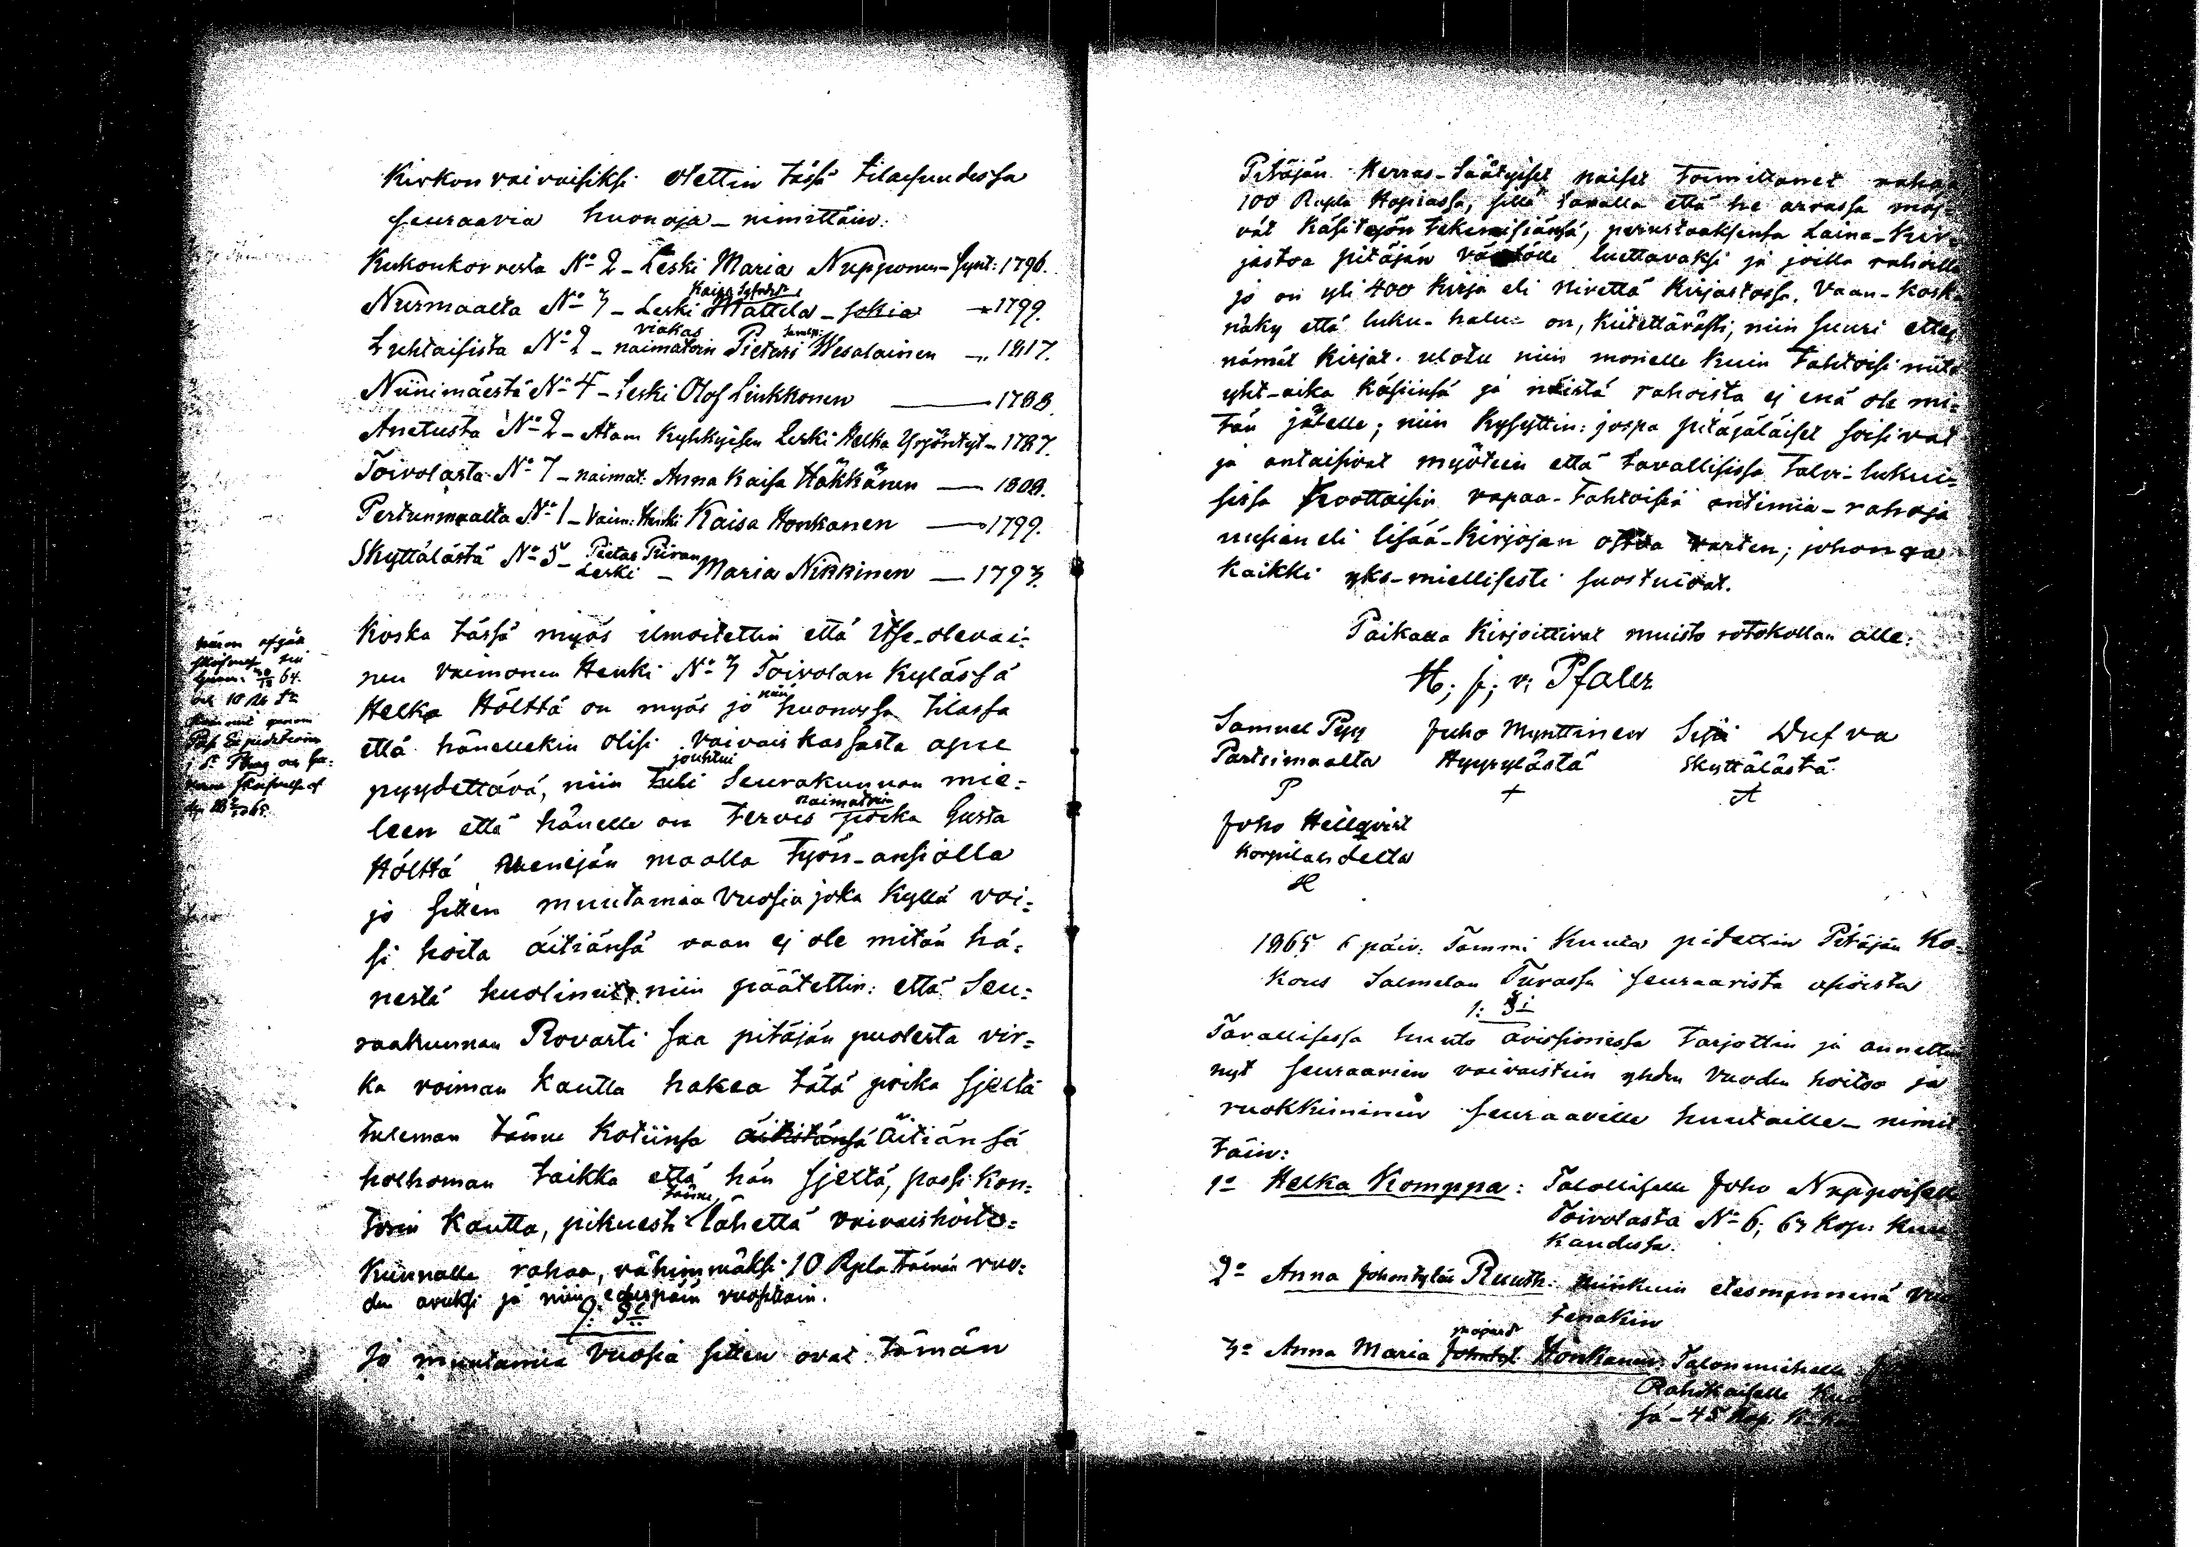 Kirkon vaivaisiksi otettin tässä tilaisuudessa
seuraavia huonoja_ nimittäin:
Kukonkorvesta No 2 _ Leski Maria Nupponen _ synt: 1796.
Nurmaalta No 3 _ Leski Mattila _ sokia _ 1799.
Luhtaisista No 2 _ viakas naimatoin Pietari Wesalainen _ „ 1817.
Niinimäestä No 4 _ Leski Olof Linkkonen _ 1788.
Anetusta No 2 _ Atam Kyhkyisen Leski Helka Yrjöntyt _ 1787.
Toivolasta No 7 _ naimat: Anna Kaisa Häkkänen _ 1808.
Pertunmaalta No 1 _ Vaim: Henki Kaisa Honkanen _ 1799.
Skyttälästä No 5 _ Pietar Piiran Leski _ Maria Nikkinen _ 1793.
Koska tässä myös ilmoitettin että Itse-olevai=
nen vaimonen Henki No 3 Toivolan Kylässä
Helka Hölttä on myös jo niin huonossa tilassa
että hänellekin olisi vaivaiskassasta apue
pyydettävä, niin johtui Seurakunnan mie=
leen että hänelle on terves naimatoin poika Gusta
Hölttä Wenejän maalla työn-ansiolla
jo sitten muutamia vuosia joka kyllä voi=
si hoita äitiänsä vaan ej ole mitän hä=
nestä huolinut, niin päätettin: että Seu=
raakunnan Rovasti saa pitäjän puolesta vir=
ka voiman kautta hakea tätä poika sjeltä
tuleman tänne kotiinsa äitistänsä äitiänsä
holhoman taikka että hän sjeltä, passi kon=
torin kautta, pikuesti tänne lähettä vaivaishoito=
kunnalle rahaa, vähimmäksi 10 Rpla tämän vuo=
den avuksi ja niin eduspäin vuosittain.
7: §i
Jo muutamia vuosia sitten ovat tämän
Pitäjän Herras-Säätyiset naiset toimittanet rahaa
100 Rupla Hopiassa, sillä tavalla että he arvassa
vät käsitöjön tekemisiänsä, perustaaksensa Laina-Kir=
jastoa pitäjän luettavaksi ja joilla rahoilla
jo on yli 400 Kirja eli nivettä Kirjastossa. Vaan-koska
näky että luku-halu on, kiitettävästi, niin suuri ettej
nämät Kirjat ulotu niin monelle kuin tahtoisi niitä
yht-aika käsiinsä ja näistä rahoista ej enä ole mi=
tän jätelle; niin kysyttin: jospa pitäjäläiset soisivat
ja antaisivat myötein että tavallisissa talvi-lukui=
sissa koottaisin vapaa-tahtoisia antimia-rahoja
uusien eli lisää-Kirjojan ostoa varten; johonga
Kaikki yks-miellisesti suostuivat.
Paikalla Kirjoittivat muisto rotokollan alle:
H; f; v; Pfaler
Samuel Pyy Juho Mynttinen Dufva
Partsimaalta Hyyrylästä Skyttälästä
P + A
Joho Hellqvist
Korpilahdelta
H
1865 6 päiv: Tammi Kuuta pidettin Pitäjän Ko=
kous Salmelan Tuvassa seuraavista asioista
1: §i
Tavallisessa huuto avissionissa tarjottin ja annettin
nyt seuraavien vaivaistein yhden vuoden hoitoo ja
ruokkiminen seuraaville huutaille_ nimit
täin:
1o Helka Komppa: Talolliselle Joho Nuppoiselle
Toivolasta No 6; 63 Kop: kuu
kaudessa.
2o Anna Johontytär Ruuth: niinkuin etesmennenä vuo
tenakin
3o Anna Maria Honkanen: Talonmiehelle
Rahikaiselle
sä _ 45 Kop.